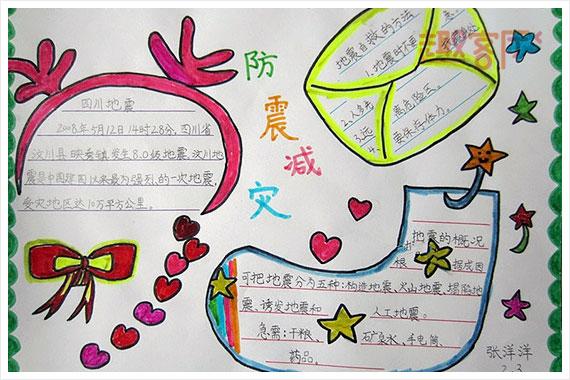 防
震
减
灾
四川地震
2008年5月12日14时28分,四川省
汶川县映秀镇发生8.0级地震,汶川地
震是中国建国以来最为强烈的一次地震,
受灾地区达10万平方公里。
地震自救的方法
1.地震时不要
2.人多先
离危险区。
3.远
4.
要保存体力。
地震的概况
根 据成因
可把地震分为五种:构造地震、火山地震、塌陷地
震、诱发地震和 人工地震。
急需:干粮、 矿泉水、手电筒
药品。
张洋洋
2.3
趣客网